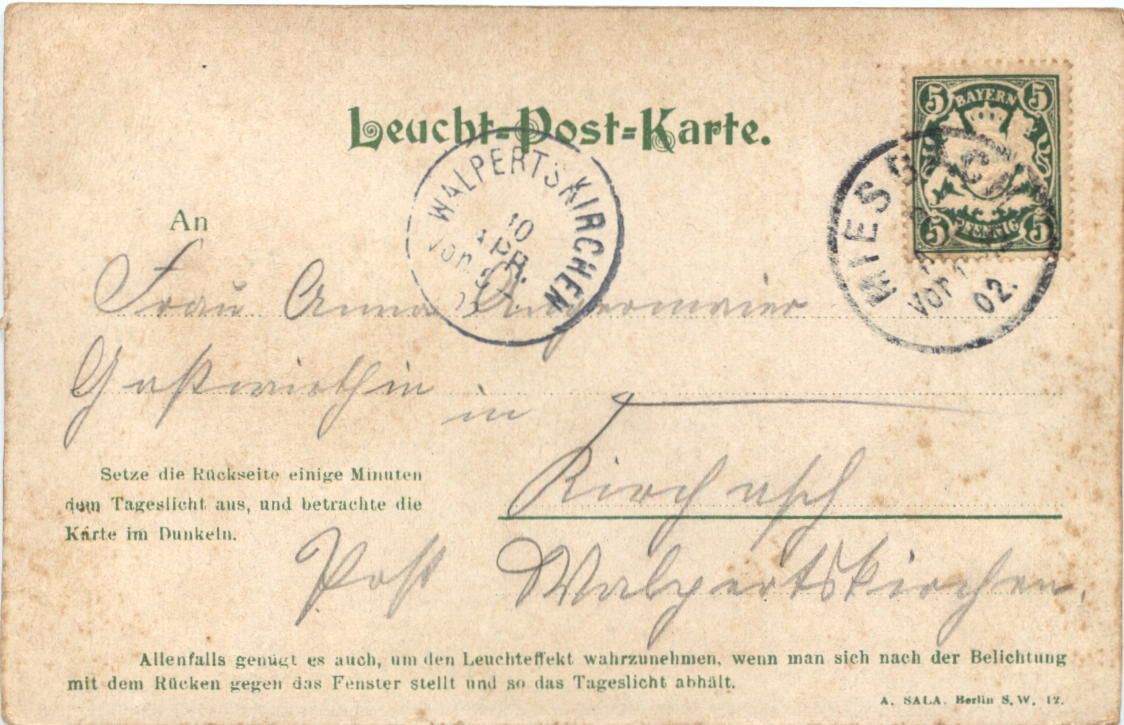 Leucht-Post-Karte.
BAYERN
5 5
5 5
PFENNIG
MIESBACH
VOR
02.
WALPERTSKIRCHEN
10
APR.
VOR.
An
Frau Anna
Gastwirthin
in
Kirchasch
Post Walpertskirchen.
Setze die Rückseite einige Minuten
dem Tageslicht aus, und betrachte die
Karte im Dunkeln.
Allenfalls genügt es auch, um den Leuchteffekt wahrzunehmen, wenn man sich nach der Belichtung
mit dem Rücken gegen das Fenster stellt und so das Tageslicht abhält.
A. SALA. Berlin S.W. 12.